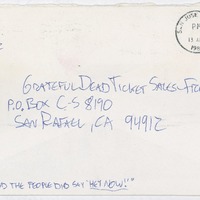 SAN JOSE
PM
GRATEFUL DEAD TICKET SALES
P.O. BOX C-S 8190
SAN RAFAEL, CA 94912
THE PEOPLE DID SAY "HEY NOW!!"